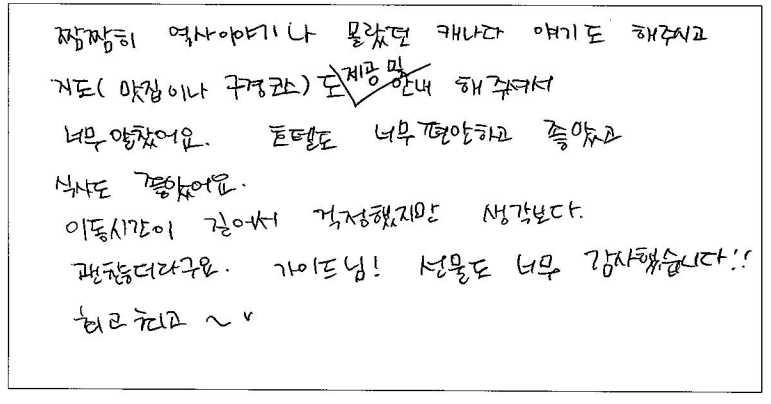 짬짬히 역사이야기나 몰랐던 캐나다 얘기도 해주시고
지도(맛집이나 구경코스)도 제공 및 안내 해주셔서
너무 알찼어요. 호텔도 너무 편안하고 좋았고
식사도 좋았어요.
이동시간이 길어서 걱정했지만 생각보다.
괜찮더라구요. 가이드님! 선물도 너무 감사했습니다!!
최고 최고 ~